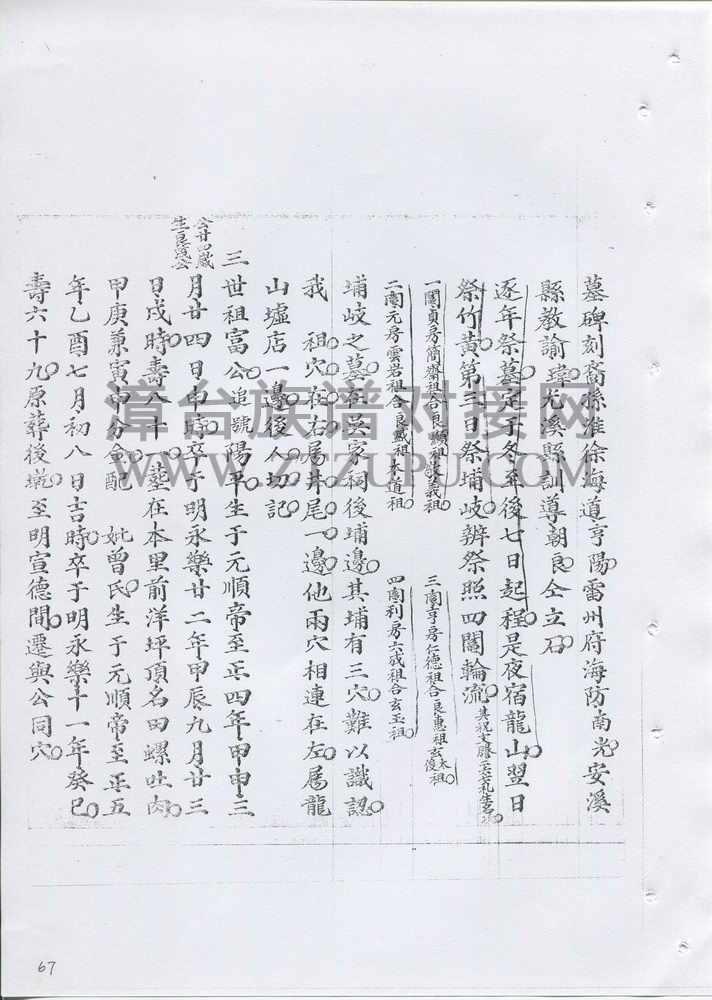 墓碑刻裔孫淮徐海道亨陽雷州府海防南光安溪
縣教諭瑋尤溪縣訓導朝良仝立石
逐年祭墓定于冬至後七日起程是夜宿龍山翌日
祭竹黃第三日祭埔岐辨祭照四闔輪流
一闔貞房簡齋祖合良顯祖義祖
三闔亨房仁德祖合良惠祖
二闔元房雲岩祖合良盛祖本道祖
四闔利房六成祖合玄玉祖
埔岐之墓在吳家祠後埔邊其埔有三穴難以識認
我 祖穴在右尾井尾一邊他兩穴相連在左屬龍
山墟店一邊後人切記
三世祖富公追號陽平生于元順帝至正四年甲申三
公廿四歲
生良茂公
月廿四日申時卒于明永樂廿二年甲辰九月廿三
日戌時壽八十一塟在本里前洋坪頂名田螺吐肉
甲庚兼寅申分金配 妣曾氏生于元順帝至正五
年乙酉七月初八日吉時卒于明永樂十一年癸巳
壽六十九原葬後墘至明宣德間遷與公同穴
漳台族谱对接网
WWW.ZTZUPU.COM
67